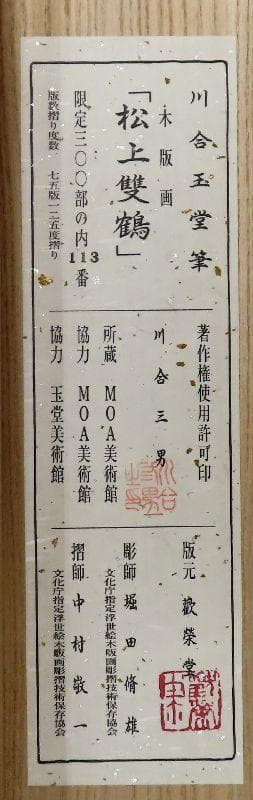 川合玉堂筆
木版画
「松上雙鶴」
限定三〇〇部の内113番
版数摺り度数 七五版一二五度摺り
著作権使用許可印
川合三男
所蔵 MOA美術館
協力 MOA美術館
協力 玉堂美術館
版元 歡榮堂
彫師 堀田脩雄
文化庁指定浮世絵木版画彫摺技術保存協会
摺師 中村敬一
文化庁指定浮世絵木版画彫摺技術保存協会